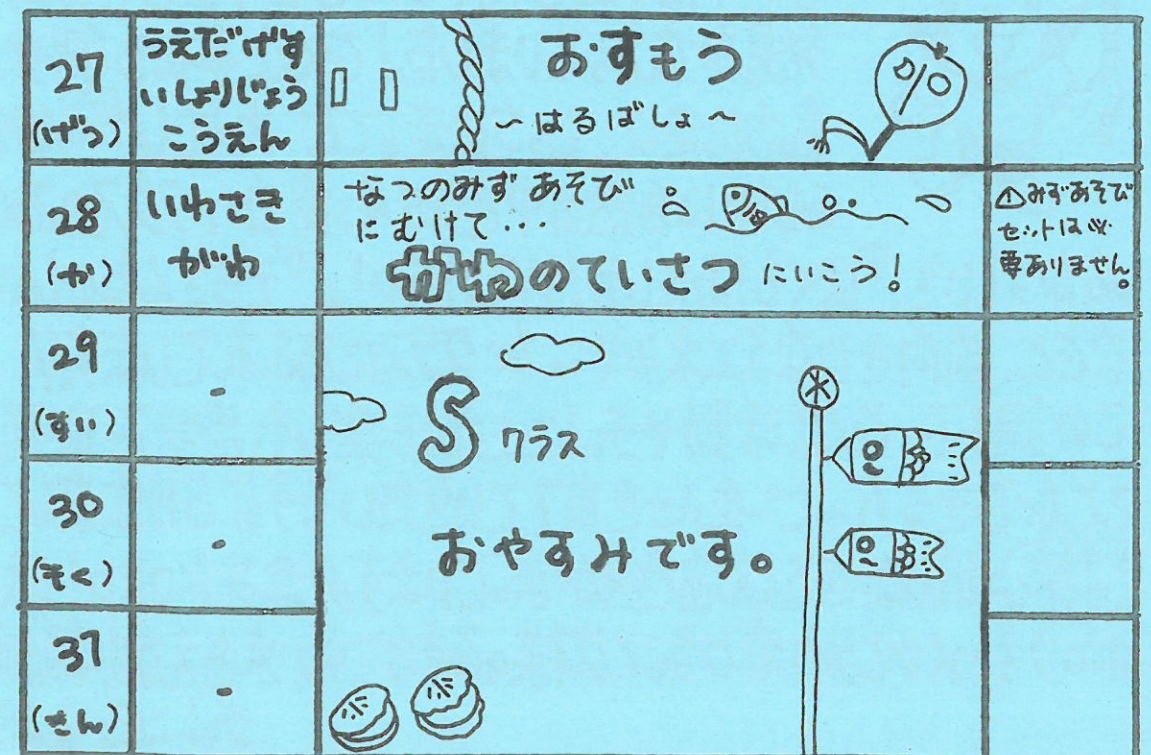 27
(げつ)
うえだげす
いしょりじょう
こうえん
おすもう
～はるばしょ～
28
(か)
いわさき
がわ
なつのみず あそび
にむけて・・・
かわのていさつ にいこう!
⚠みずあそび
セットは必
要ありません。
29
(すい)
-
S クラス
おやすみです。
30
(もく)
-
31
(きん)
-